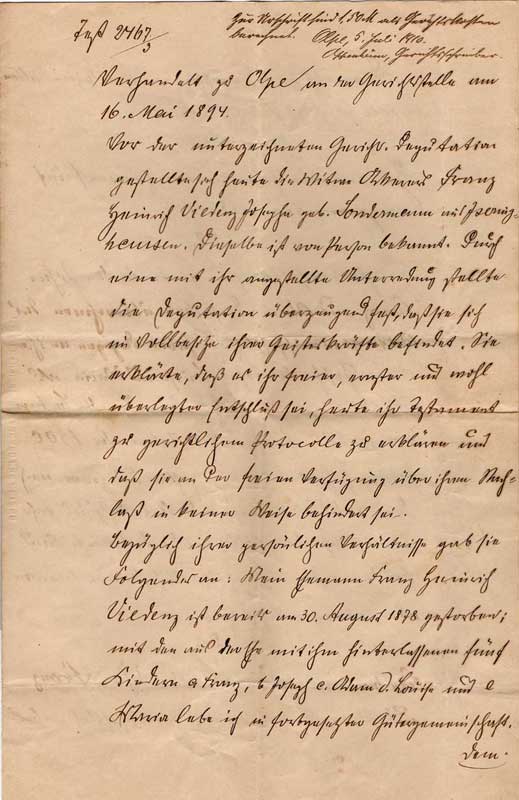 Test 2467/3
Zur Urschrift sind 1,50 M als Gerichtskosten
berechnet. Olpe, 5. Juli 1910.
Gerichtsschreiber.
Verhandelt zu Olpe an der Gerichtsstelle am
16. Mai 1894.
Vor der unterzeichneten Gerichts-Deputation
gestellte sich heute die Witwe Ackerers Franz
Heinrich Viedenz Josepha geb. Sondermann aus Isering-
hausen. Dieselbe ist von Person bekannt. Durch
eine mit ihr angestellte Unterredung stellte
die Deputation überzeugend fest, daß sie sich
im Vollbesitze ihrer Geisteskräfte befindet. Sie
erklärte, daß es ihr freier, ernster und wohl
überlegter Entschluß sei, heute ihr Testament
zu gerichtlichem Protocolle zu erklären und
daß sie an der freien Verfügung über ihren Nach-
laß in keiner Weise behindert sei.
Bezüglich ihrer persönlichen Verhältnisse gab sie
Folgendes an: Mein Ehemann Franz Heinrich
Viedenz ist bereits am 30. August 1878 gestorben;
mit den aus der Ehe mit ihm hinterlassenen fünf
Kindern a Franz, b Joseph c. Adam d. Louise und e
Maria lebe ich in fortgesetzter Gütergemeinschaft.
Dem-